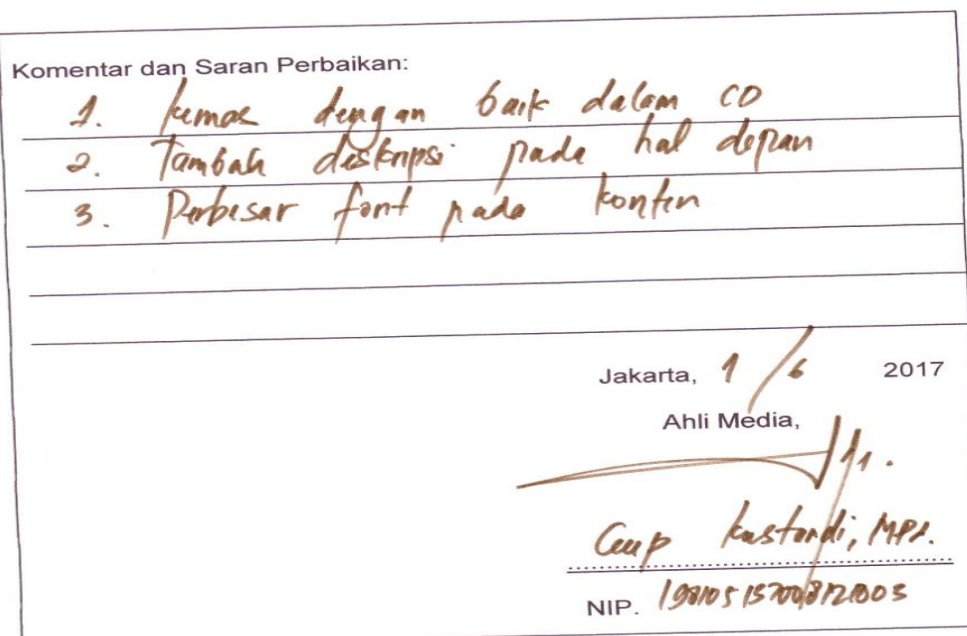 Komentar dan Saran Perbaikan:
1. kemas dengan baik dalam CD
2. Tambah deskripsi pada hal depan
3. Perbesar font pada konten
Jakarta, 1/6 2017
Ahli Media,
Cecep Kustandi, MPd.
NIP.